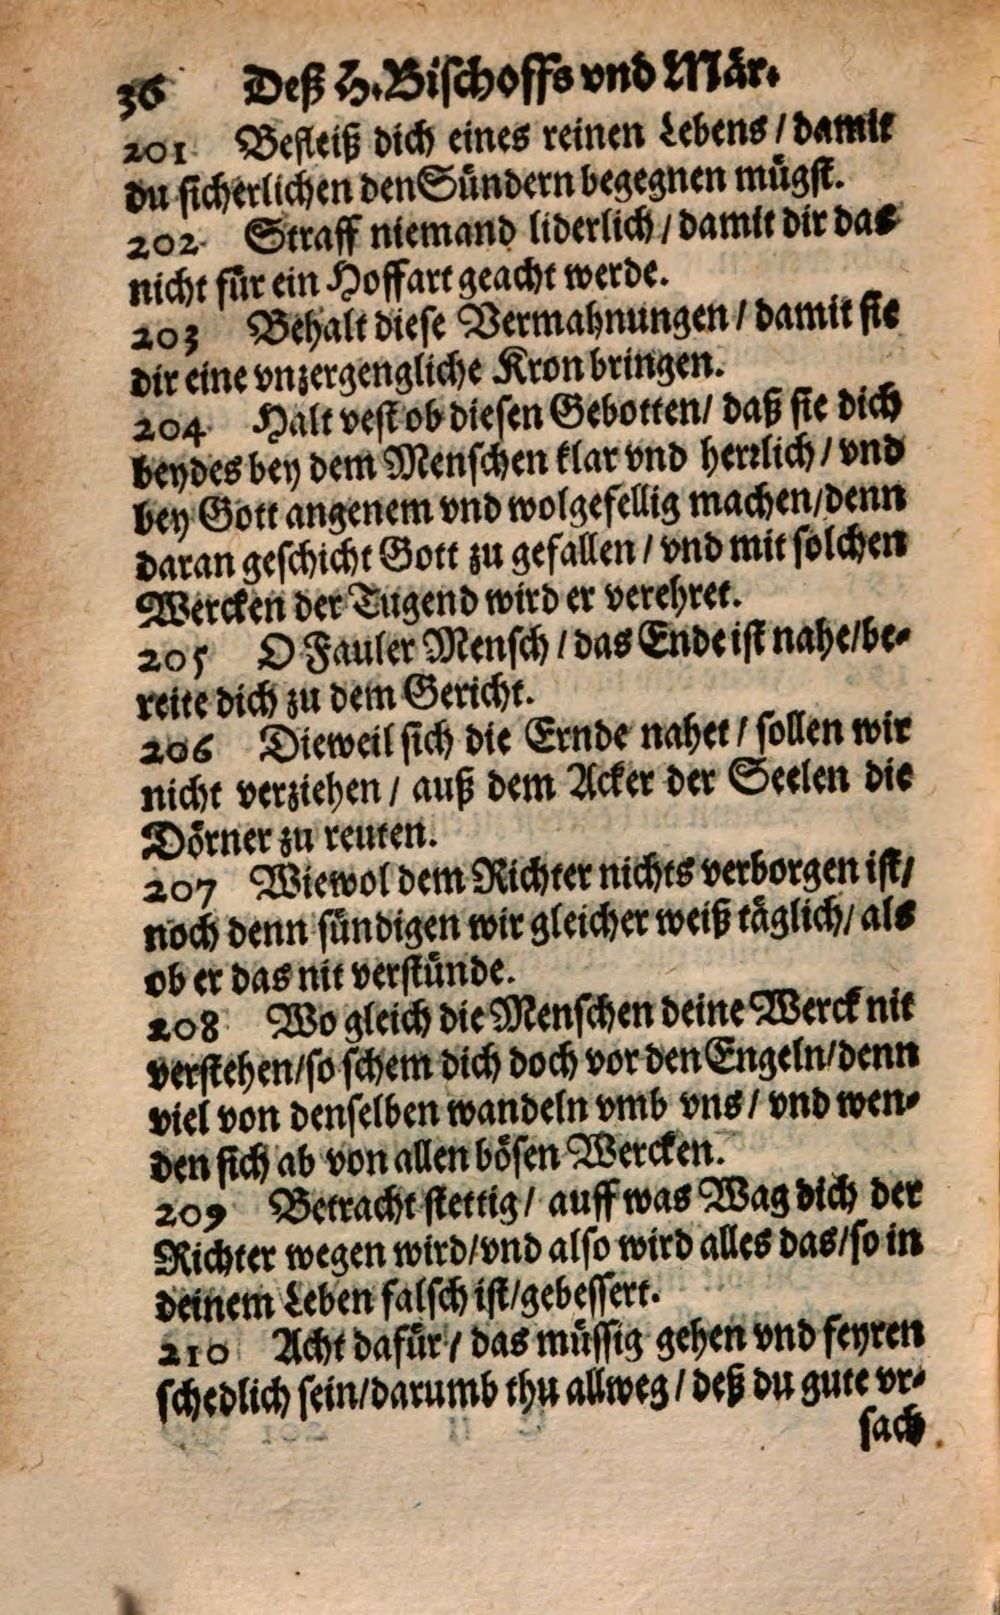 36 Deß H. Bischoffs vnd Mär.
201 Befleiß dich eines reinen Lebens / damit
du sicherlichen den Sündern begegnen mügst.
202 Straff niemand liderlich / damit dir das
nicht für ein Hoffart geacht werde.
203 Behalt diese Vermahnungen / damit sie
dir eine vnzergengliche Kron bringen.
204 Halt vest ob diesen Gebotten / daß sie dich
beydes bey dem Menschen klar vnd herrlich / vnd
bey Gott angenem vnd wolgefellig machen / denn
daran geschicht Gott zu gefallen / vnd mit solchen
Wercken der Tugend wird er verehret.
205 O Fauler Mensch / das Ende ist nahe / be-
reite dich zu dem Gericht.
206 Dieweil sich die Ernde nahet / sollen wir
nicht verziehen / auß dem Acker der Seelen die
Dörner zu reuten.
207 Wiewol dem Richter nichts verborgen ist /
noch denn sündigen wir gleicher weiß täglich / als
ob er das nit verstünde.
208 Wo gleich die Menschen deine Werck nit
verstehen / so schem dich doch vor den Engeln / denn
viel von denselben wandeln vmb vns / vnd wen-
den sich ab von allen bösen Wercken.
209 Betracht stettig / auff was Wag dich der
Richter wegen wird / vnd also wird alles das / so in
deinem Leben falsch ist / gebessert.
210 Acht dafür / das müssig gehen vnd feyren
schedlich sein / darumb thu allweg / deß du gute vr-
sach